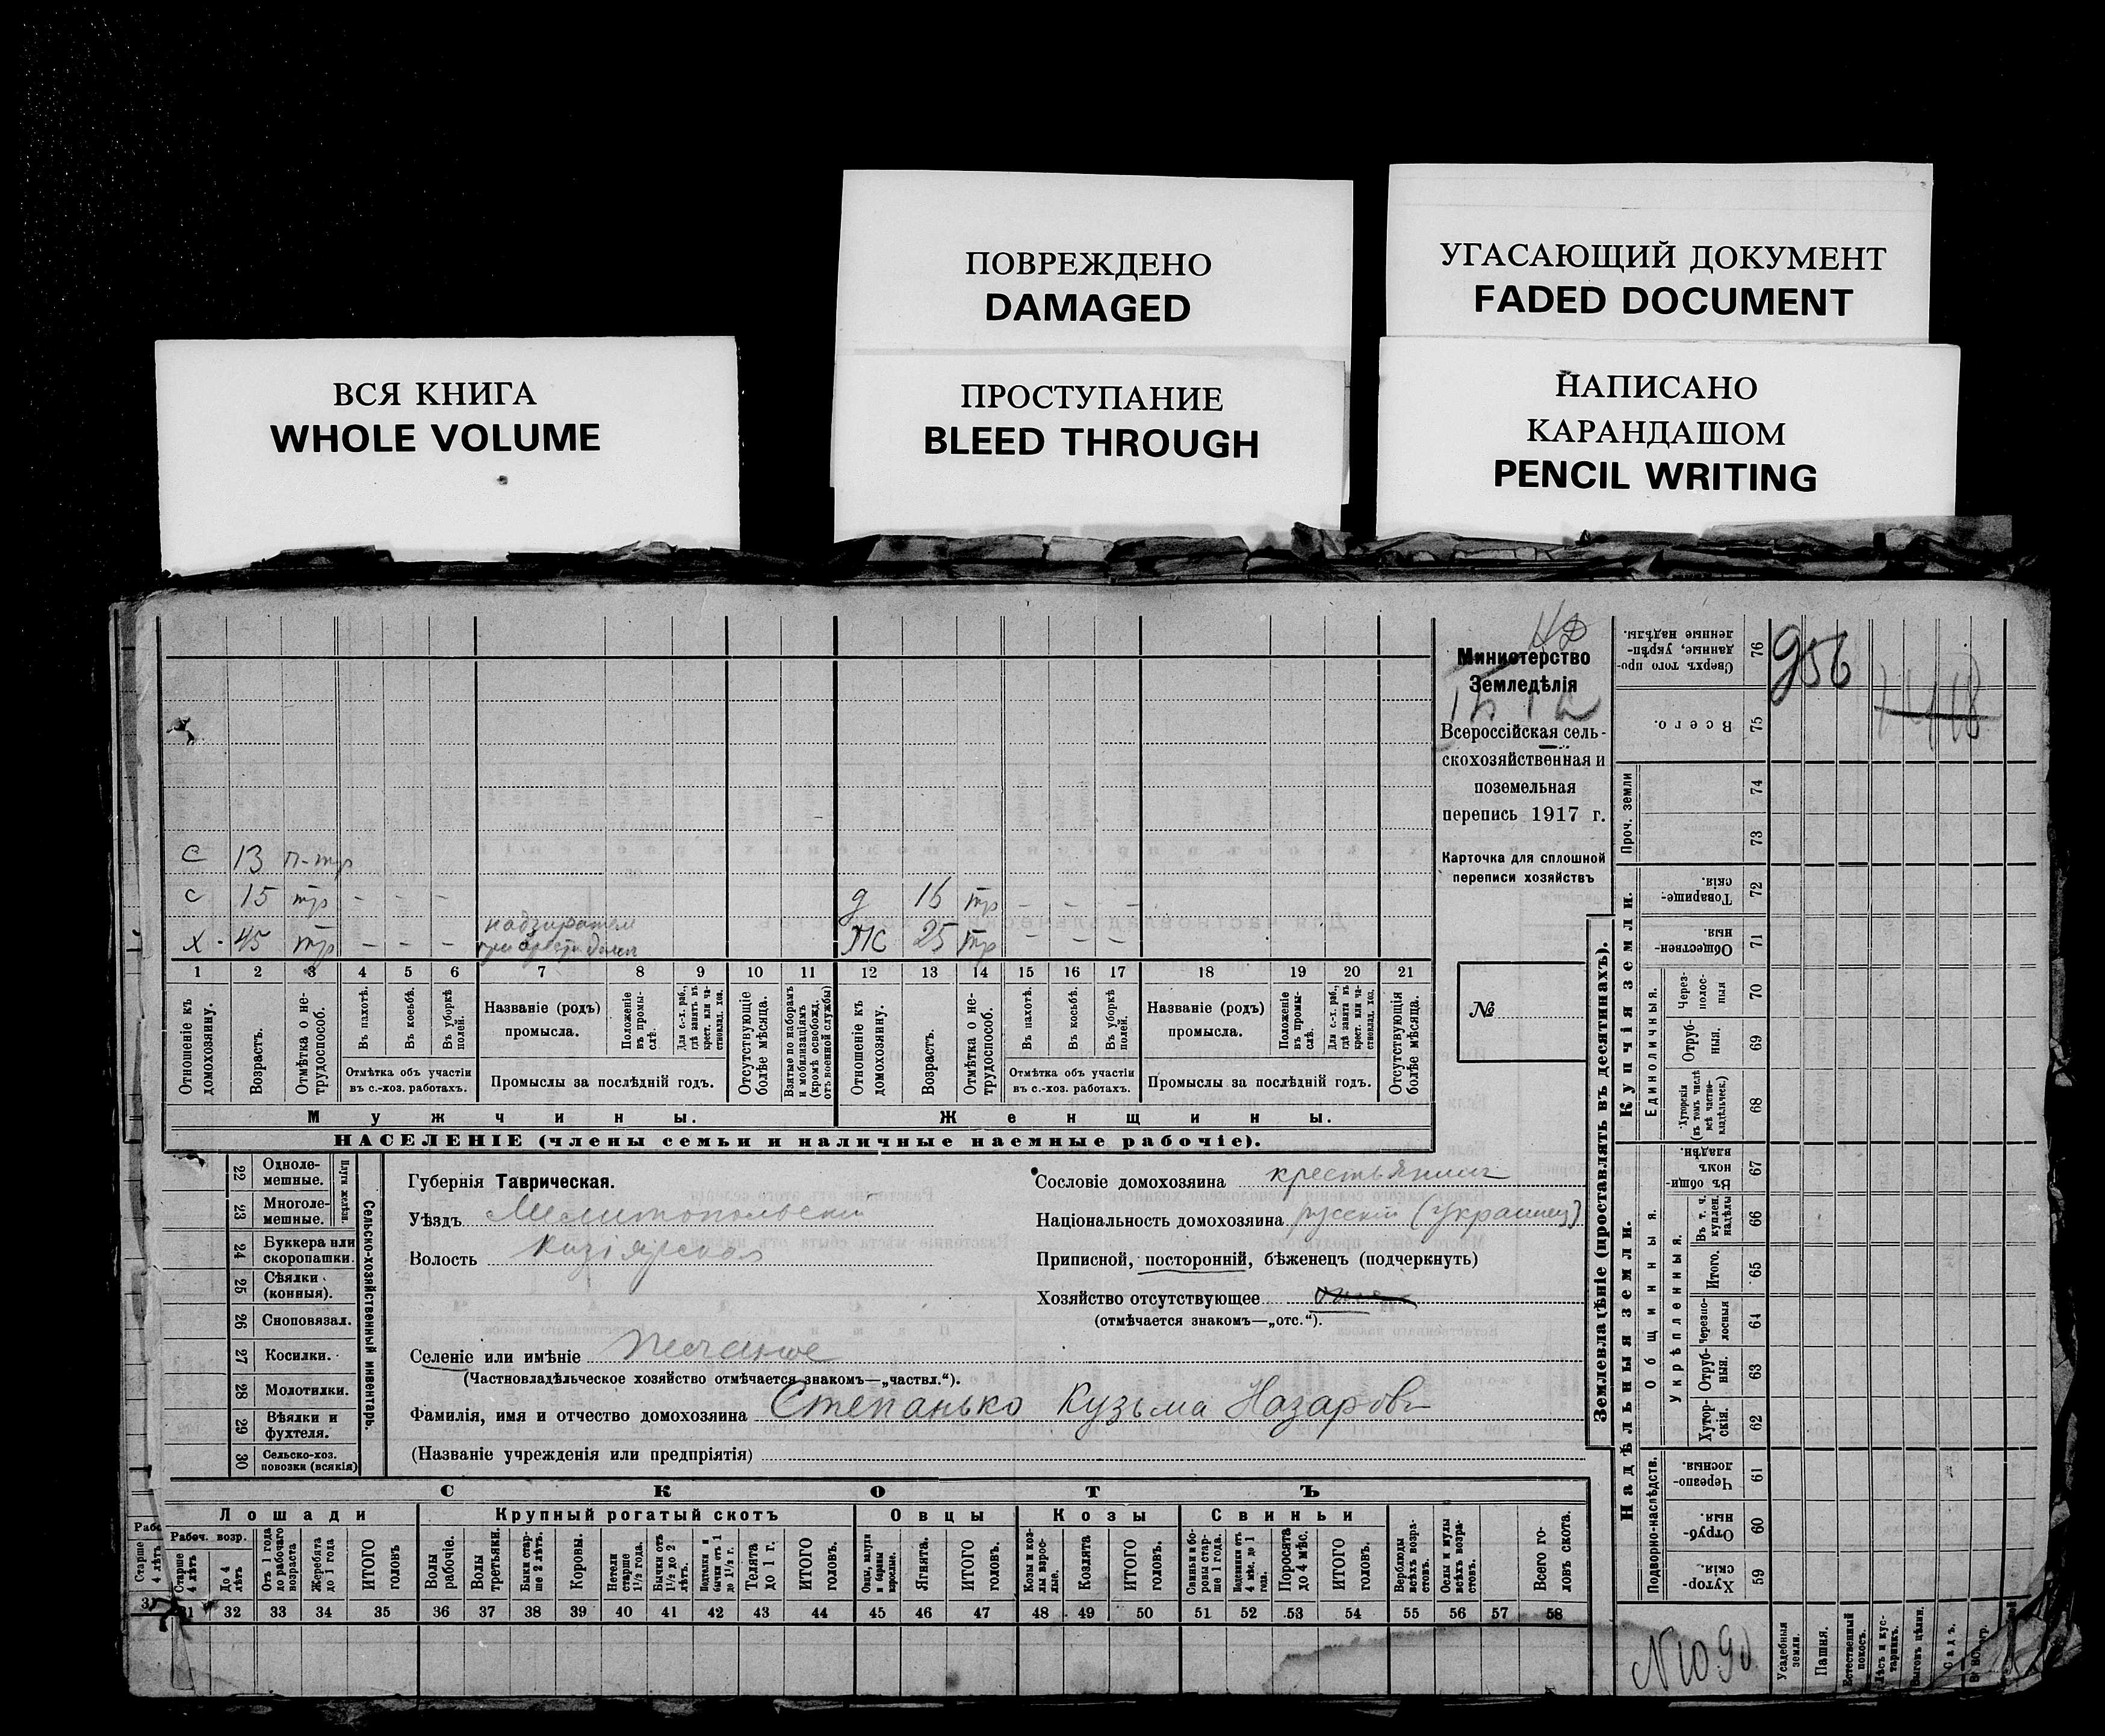 ВСЯ КНИГА
WHOLE VOLUME
ПОВРЕЖДЕНО
DAMAGED
ПРОСТУПАНИЕ
BLEED THROUGH
УГАСАЮЩИЙ ДОКУМЕНТ
FADED DOCUMENT
НАПИСАНО
КАРАНДАШОМ
PENCIL WRITING
Министерство
Земледѣлія
Всероссійская сель-
скохозяйственная и
поземельная
перепись 1917 г.
Карточка для сплошной
переписи хозяйствъ
№
956
с 13 п-тр
с 15 тр - - -
д 16 тр - - -
надзиратель
х 45 тр - - -
ж 25 тр - - -
1 2 3 4 5 6 7 8 9 10 11 12 13 14 15 16 17 18 19 20 21
Отношеніе къ домохозяину.
Возрастъ.
Отмѣтка о не-трудоспособ.
Въ пахотѣ.
Въ косьбѣ.
Въ уборкѣ полей.
Отмѣтка объ участіи
въ с.-хоз. работахъ.
Названіе (родъ)
промысла.
Положеніе въ промы-слѣ.
Для с.-х. раб., гдѣ занятъ въ крест. или ча-стновлад. хоз.
Промыслы за послѣдній годъ.
Отсутствующіе болѣе мѣсяца.
Взятые по наборамъ и мобилизаціямъ (кромѣ освобожд. отъ военной службы)
Отношеніе къ домохозяину.
Возрастъ.
Отмѣтка о не-трудоспособ.
Въ пахотѣ.
Въ косьбѣ.
Въ уборкѣ полей.
Отмѣтка объ участіи
въ с.-хоз. работахъ.
Названіе (родъ)
промысла.
Положеніе въ промы-слѣ.
Для с.-х. раб., гдѣ занятъ въ крест. или ча-стновлад. хоз.
Промыслы за послѣдній годъ.
Отсутствующія болѣе мѣсяца.
Мужчины.
Женщины.
НАСЕЛЕНІЕ (члены семьи и наличные наемные рабочіе).
22 Одноле-мешные.
23 Многоле-мешные.
Плуги желѣзн.
24 Буккера или скоропашки.
25 Сѣялки (конныя).
26 Сноповязал.
27 Косилки.
28 Молотилки.
29 Вѣялки и фухтеля.
30 Сельско-хоз. повозки (всякія)
Сельско-хозяйственный инвентарь.
Губернія Таврическая.
Уѣздъ Мелитопольскій
Волость
Сословіе домохозяина крестьянин
Національность домохозяина русскій (Украинец)
Приписной, посторонній, бѣженецъ (подчеркнуть)
Хозяйство отсутствующее
(отмѣчается знакомъ—„отс.“).
Селеніе или имѣніе Песчаное
(Частновладѣльческое хозяйство отмѣчается знакомъ—„частвл.“).
Фамилія, имя и отчество домохозяина Степанько Кузьма Назарови
(Названіе учрежденія или предпріятія)
СКОТЪ
Лошади
Крупный рогатый скотъ
Овцы
Козы
Свиньи
Рабоч. возр.
Старше 4 лѣтъ
До 4 лѣтъ
Отъ 1 года до рабочаго возраста
Жеребята до 1 года
ИТОГО головъ
Волы рабочіе.
Волы третьяки.
Быки стар-ше 2 лѣтъ.
Коровы.
Нетели старше 1½ года.
Бычки отъ 1½ до 2 лѣтъ.
Телята до 1 г.
ИТОГО головъ.
Ягнята.
ИТОГО головъ.
Козы и коз-лы взрос-лые.
Козлята
ИТОГО головъ.
Свиньи и бо-ровы стар-ше 1 года.
Поросята до 4 мѣс.
ИТОГО головъ.
Верблюды всѣхъ возра-стовъ.
Ослы и мулы всѣхъ возра-стовъ.
Всего го-ловъ скота.
31 32 33 34 35 36 37 38 39 40 41 42 43 44 45 46 47 48 49 50 51 52 53 54 55 56 57 58
Землевладѣніе (проставлять въ десятинахъ).
Надѣльныя земли.
Купчія земли.
Проч. земли
Сверхъ того про-данные, укрѣп-ленные надѣлы. 76
Всего. 75
74
73
Товарище-скія. 72
Обществен-ныя. 71
Единоличныя.
Через-полос-ныя 70
Отруб-ныя. 69
Хуторскія (въ томъ числѣ всѣ частно-владѣльческ.) 68
Общинныя.
Укрѣпленныя.
Въ общи-номъ владѣн. 67
Въ т. ч. куплен. надѣлы 66
Итого. 65
Черезпо-лосныя 64
Отруб-ныя. 63
Хутор-скія. 62
Подворно-наслѣдств.
Черезпо-лосныя. 61
Отруб-ныя. 60
Хутор-скія. 59
Усадебныя земли.
Пашня.
Естественный покосъ.
Лѣсъ и кус-тарникъ.
Выгонъ цѣлин.
Садъ.
N1090